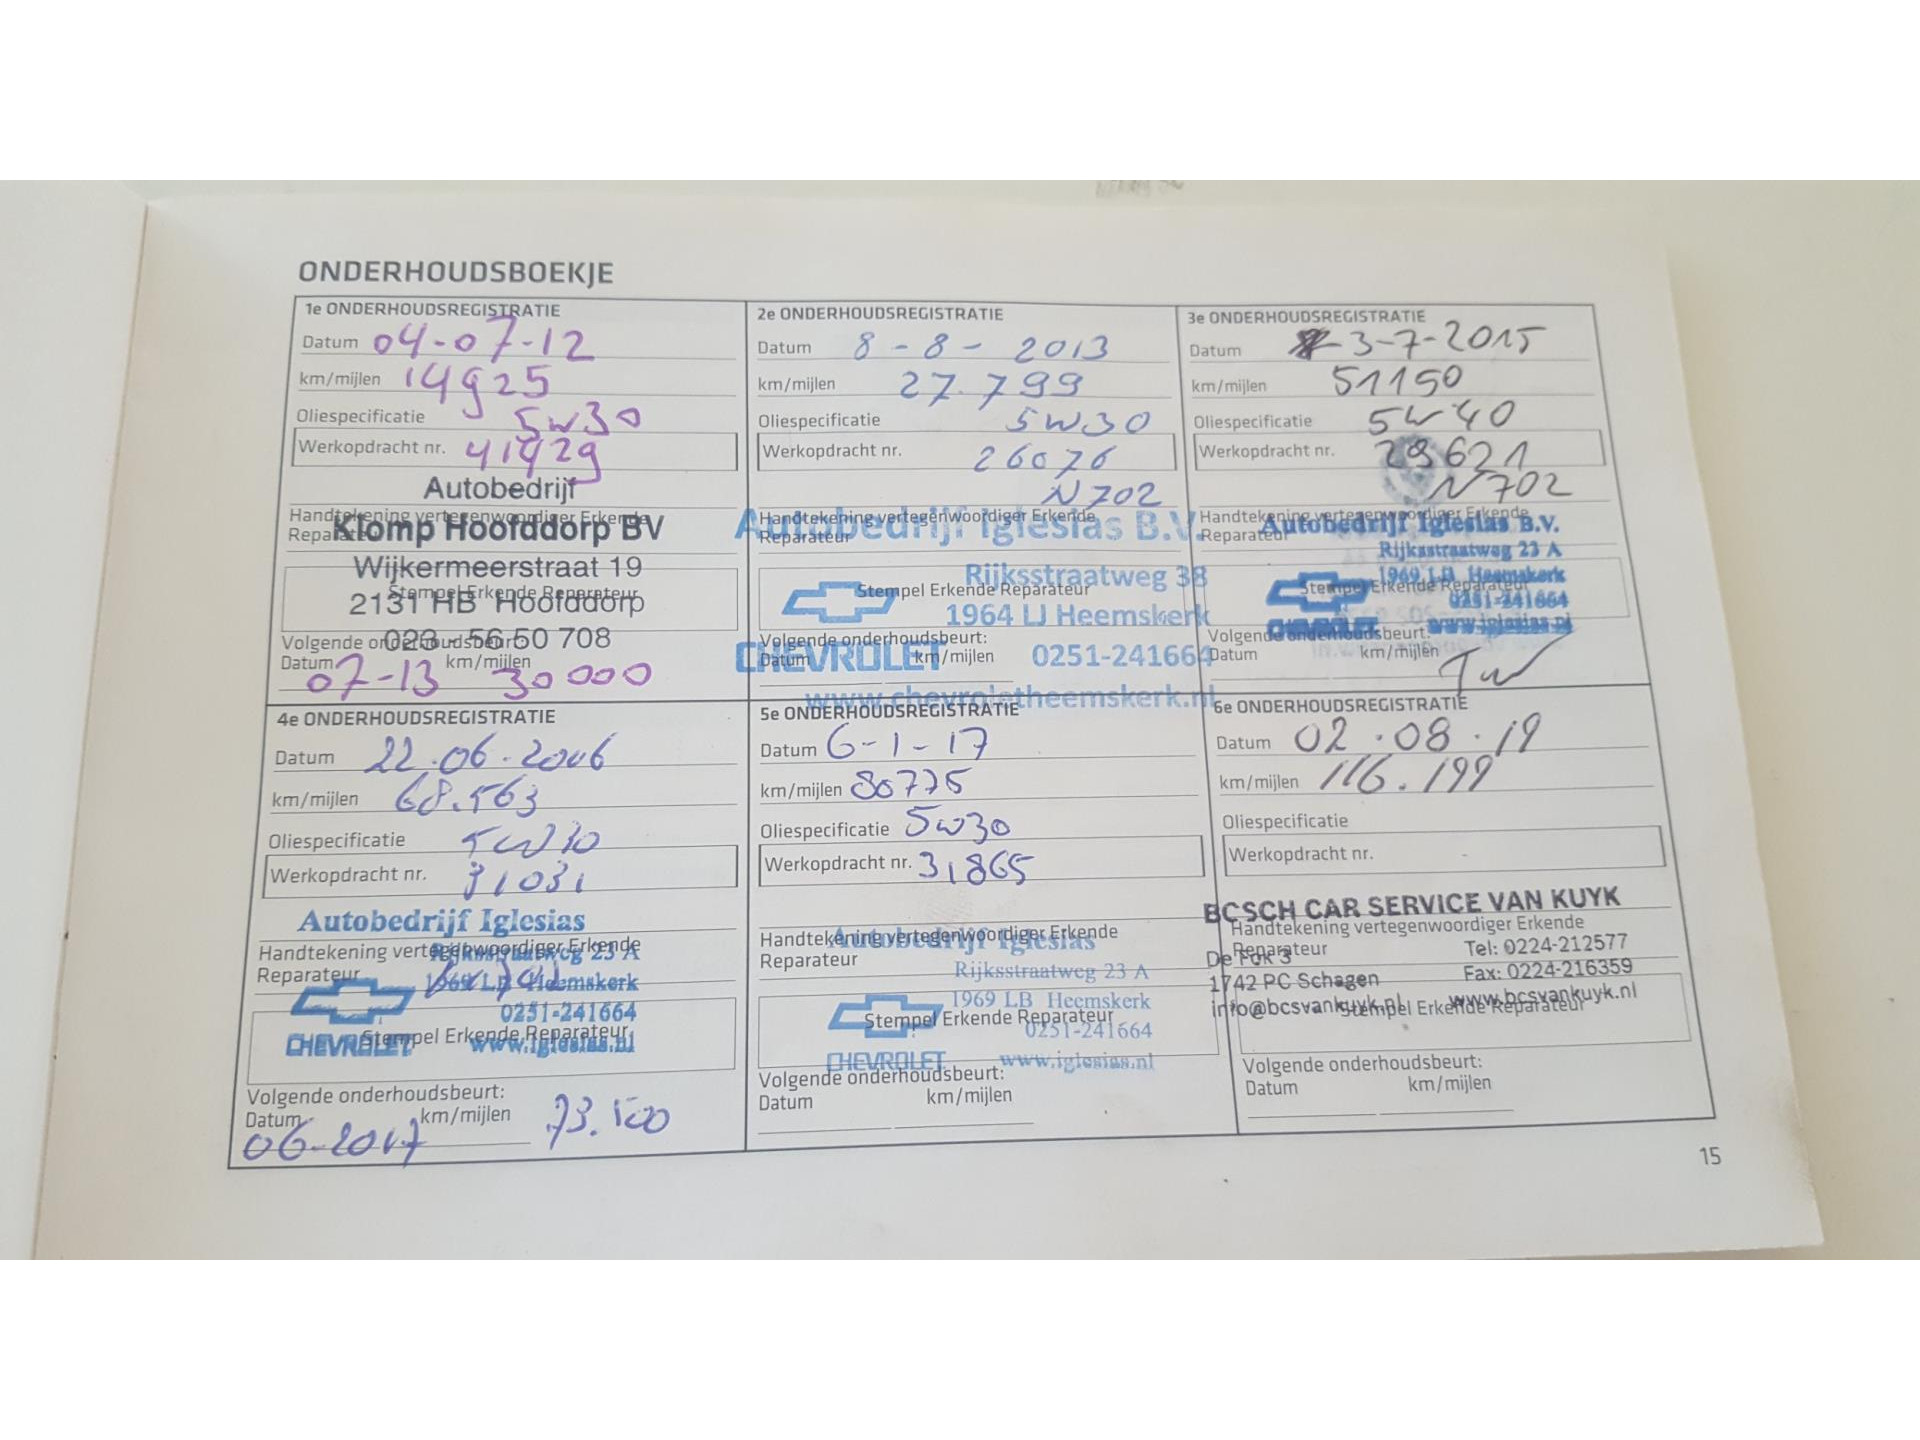 ONDERHOUDSBOEKJE
1e ONDERHOUDSREGISTRATIE
Datum 04-07-12
km/mijlen 14925
Oliespecificatie 5w30
Werkopdracht nr. 41429
Autobedrijf
Handtekening vertegenwoordiger Erkende
Reparateur
Klomp Hoofddorp BV
Wijkermeerstraat 19
Stempel Erkende Reparateur
2131 HB Hoofddorp
023 - 56 50 708
Volgende onderhoudsbeurt:
Datum km/mijlen
07-13 30000
2e ONDERHOUDSREGISTRATIE
Datum 8-8-2013
km/mijlen 27.799
Oliespecificatie 5W30
Werkopdracht nr. 26076
N702
Handtekening vertegenwoordiger Erkende
Reparateur
Autobedrijf Iglesias B.V.
Rijksstraatweg 38
Stempel Erkende Reparateur
1964 LJ Heemskerk
Volgende onderhoudsbeurt:
CHEVROLET
Datum km/mijlen
0251-241664
www.chevroletheemskerk.nl
3e ONDERHOUDSREGISTRATIE
Datum 3-7-2015
km/mijlen 51150
Oliespecificatie 5W40
Werkopdracht nr. 29621
N702
Handtekening vertegenwoordiger Erkende
Reparateur
Autobedrijf Iglesias B.V.
Rijksstraatweg 23 A
1969 LB Heemskerk
Stempel Erkende Reparateur
0251-241664
CHEVROLET www.iglesias.nl
Volgende onderhoudsbeurt:
Datum km/mijlen
4e ONDERHOUDSREGISTRATIE
Datum 22.06.2016
km/mijlen 68.563
Oliespecificatie 5W30
Werkopdracht nr. 31031
Autobedrijf Iglesias
Handtekening vertegenwoordiger Erkende
Reparateur
Rijksstraatweg 23 A
1969 LB Heemskerk
0251-241664
Stempel Erkende Reparateur
CHEVROLET www.iglesias.nl
Volgende onderhoudsbeurt:
Datum km/mijlen
06-2017 73.500
5e ONDERHOUDSREGISTRATIE
Datum 6-1-17
km/mijlen 80775
Oliespecificatie 5w30
Werkopdracht nr. 31865
Handtekening vertegenwoordiger Erkende
Reparateur
Autobedrijf Iglesias
Rijksstraatweg 23 A
1969 LB Heemskerk
Stempel Erkende Reparateur
0251-241664
CHEVROLET www.iglesias.nl
Volgende onderhoudsbeurt:
Datum km/mijlen
6e ONDERHOUDSREGISTRATIE
Datum 02.08.19
km/mijlen 116.199
Oliespecificatie
Werkopdracht nr.
BOSCH CAR SERVICE VAN KUYK
Handtekening vertegenwoordiger Erkende
Reparateur
De Fok 3 Tel: 0224-212577
1742 PC Schagen Fax: 0224-216359
info@bcsvankuyk.nl www.bcsvankuyk.nl
Stempel Erkende Reparateur
Volgende onderhoudsbeurt:
Datum km/mijlen
15